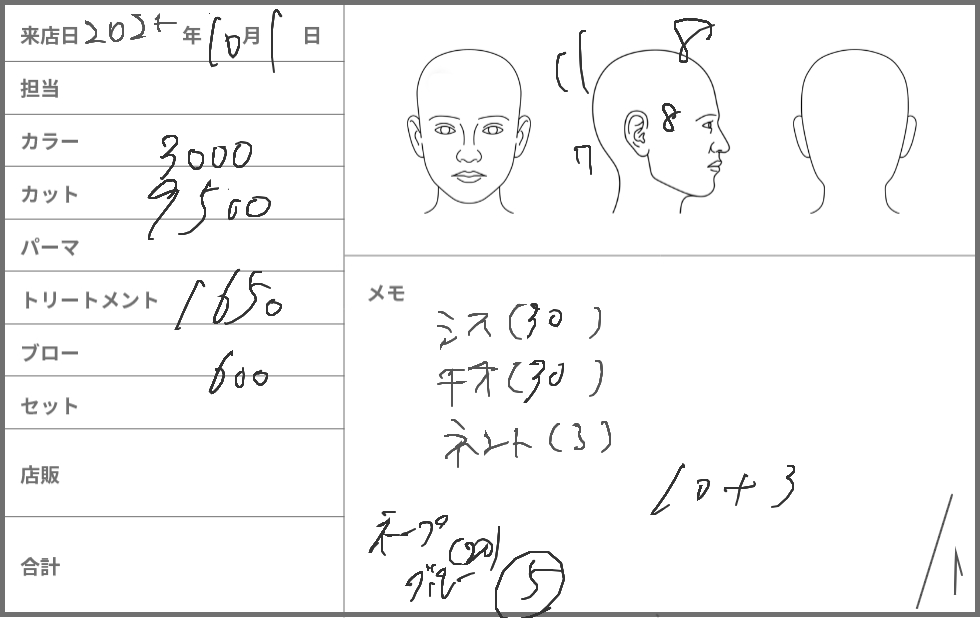 来店日 202 年 10月1日
担当
カラー 3000
カット 9500
パーマ
トリートメント 1650
ブロー 600
セット
店販
合計
8
11
8
7
メモ
ミス(30)
(30)
(3)
10+3
ネープ(20)
5